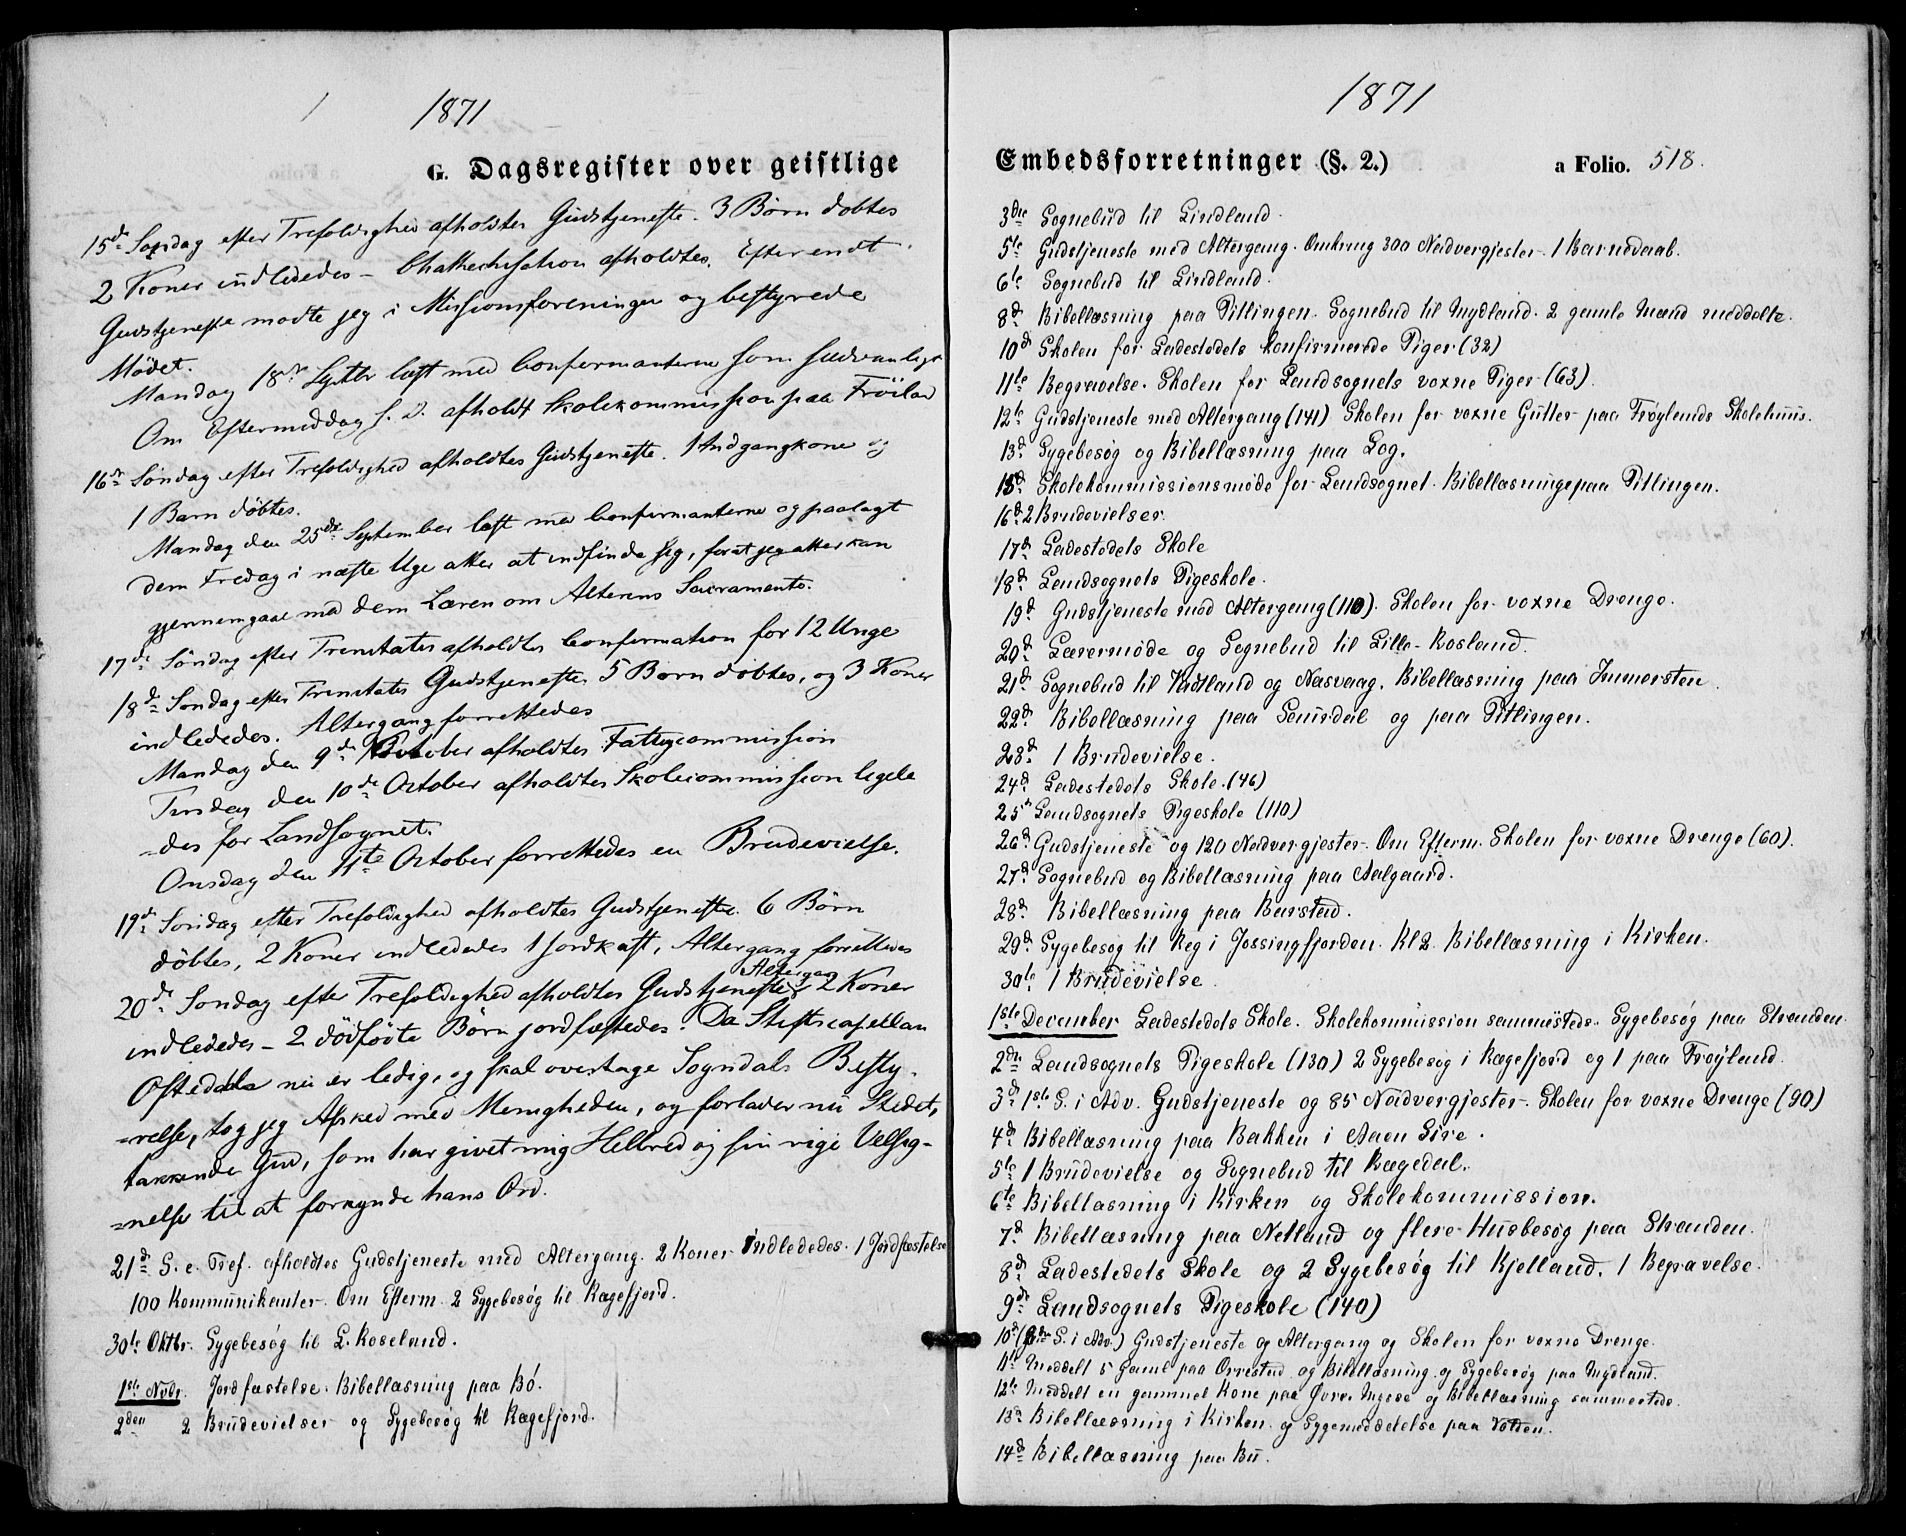 1871
G. Dagsregister over geistlige
15de Søndag efter Trefoldighed afholdtes Gudstjeneste. 3 Børn døbtes
2 Koner indlededes – Chathechisation afholdtes. Efter endt
Gudstjeneste mødte jeg i Missionsforeningen og bestyrede
Mødet.
Mandag 18de Septbr læst med Confirmanterne som sædvanligt
Om Eftermiddag s. D. afholdt Skolekommission paa Fröiland
16de Søndag efter Trefoldighed afholdtes Gudstjeneste. 1 Indgangkone og
1 Barn döbtes.
Mandag den 25de September læst med Confirmanterne og paalagt
dem Fredag i næste Uge atter at indfinde sig, forat jeg atter kan
gjennemgaae med dem Læren om Alterens Sacramente.
17de Søndag efter Trinitatis afholdtes Confirmation for 12 Unge
18de Søndag efter Trinitatis Gudstjeneste 5 Børn døbtes, og 3 Koner
indlededes. Altergang forrettedes
Mandag den 9de October afholdtes Fattigcommission
Tirsdag den 10de October afholdtes Skolecommission ligele
=des for Landsognet.
Onsdag den 11te October forrettedes en Brudevielse.
19de Søndag efter Trefoldighed afholdtes Gudstjeneste. 6 Børn
döbtes, 2 Koner indlededes 1 jordkast, Altergang forrettedes
20de Søndag efter Trefoldighed afholdtes Gudstjeneste Altergang 2 Koner
indlededes – 2 dödföte Børn jordfæstedes. Da Stiftscapellan
Oftedal nu er ledig, og skal overtage Sogndals Besty-
=relse, tog jeg Afsked med Menigheden, og forlader nu Stedet,
takkende Gud, som har givet mig Helbred og sin rige Velsig-
=nelse til at forkynde hans Ord.
21de S. e. Tref. afholdtes Gudstjeneste med Altergang. 2 Koner Indlededes. 1 Jordfæstelse
100 Kommunikanter. Om Efterm. 2 Sygebesøg til Rægefjord.
30te Oktbr. Sygebesøg til L. Roseland.
1ste Novbr. Jordfæstelse. Bibellæsning paa Bö.
2den 2 Brudevielser og Sygebesøg til Rægefjord.
1871
Embedsforretninger (§. 2.) a Folio. 518.
3die Sognebud til Lindland.
5te Gudstjeneste med Altergang. Omkring 300 Nadvergjester. 1 Barnedaab.
6te Sognebud til Lindland.
8de Bibellæsning paa Pitlingen. Sognebud til Mydland. 2 gamle Mænd meddelte.
10de Skolen for Ladestedets konfirmerede Piger (32)
11te Begravelse. Skolen for Landsognets voxne Piger (63).
12te Gudstjeneste med Altergang (141) Skolen for voxne Gutter paa Frøylands Skolehuus.
13de Sygebesøg og Bibellæsning paa Log.
15de Skolekommissionsmøde for Landsognet. Bibellæsning paa Pitlingen.
16de 2 Brudevielser.
17de Ladestedets Skole
18de Landsognets Pigeskole.
19de Gudstjeneste med Altergang (110). Skolen for voxne Drenge.
20de Lærermøde og Sognebud til Lille-Rosland.
21de Sognebud til Hidtland og Nasvaag. Bibellæsning paa Immersten.
22de Bibellæsning paa Sauredal og paa Pitlingen.
23de 1 Brudevielse.
24de Ladestedets Skole. (46)
25de Landsognets Pigeskole (110)
26de Gudstjeneste og 120 Nadvergjester. Om Efterm. Skolen for voxne Drenge (60).
27de Sognebud og Bibellæsning paa Aalgaard.
28de Bibellæsning paa Barstad.
29de Sygebesøg til Reg i Jossingfjorden. Kl 2 Bibellæsning i Kirken.
30te 1 Brudevielse.
1ste December Ladestedets Skole. Skolekommission sammesteds. Sygebesøg paa Stranden.
2den Landsognets Pigeskole (130) 2 Sygebesøg i Rægefjord og 1 paa Frøyland.
3de 1ste S. i Adv. Gudstjeneste og 85 Nadvergjester. Skolen for voxne Drenge (90)
4de Bibellæsning paa Bakken i Aaen Sire.
5te 1 Brudevielse og Sognebud til Rægedal.
6te Bibellæsning i Kirken og Skolekommission.
7de Bibellæsning paa Netland og flere Husbesøg paa Stranden.
8de Ladestedets Skole og 2 Sygebesøg til Kjelland. 1 Begravelse.
9de Landsognets Pigeskole (140)
10de (2den S. i Adv.) Gudstjeneste og Altergang og Skolen for voxne Drenge.
11te Meddelt 5 Gaml. paa Orrestad og Bibellæsning og Sygebesøg paa Mydland.
12te Meddelt en gammel Kone paa Øvre Mysse og Bibellæsning sammesteds.
13de Bibellæsning i Kirken og Sygemeddelelse paa Volden.
14de Bibellæsning paa Bu.